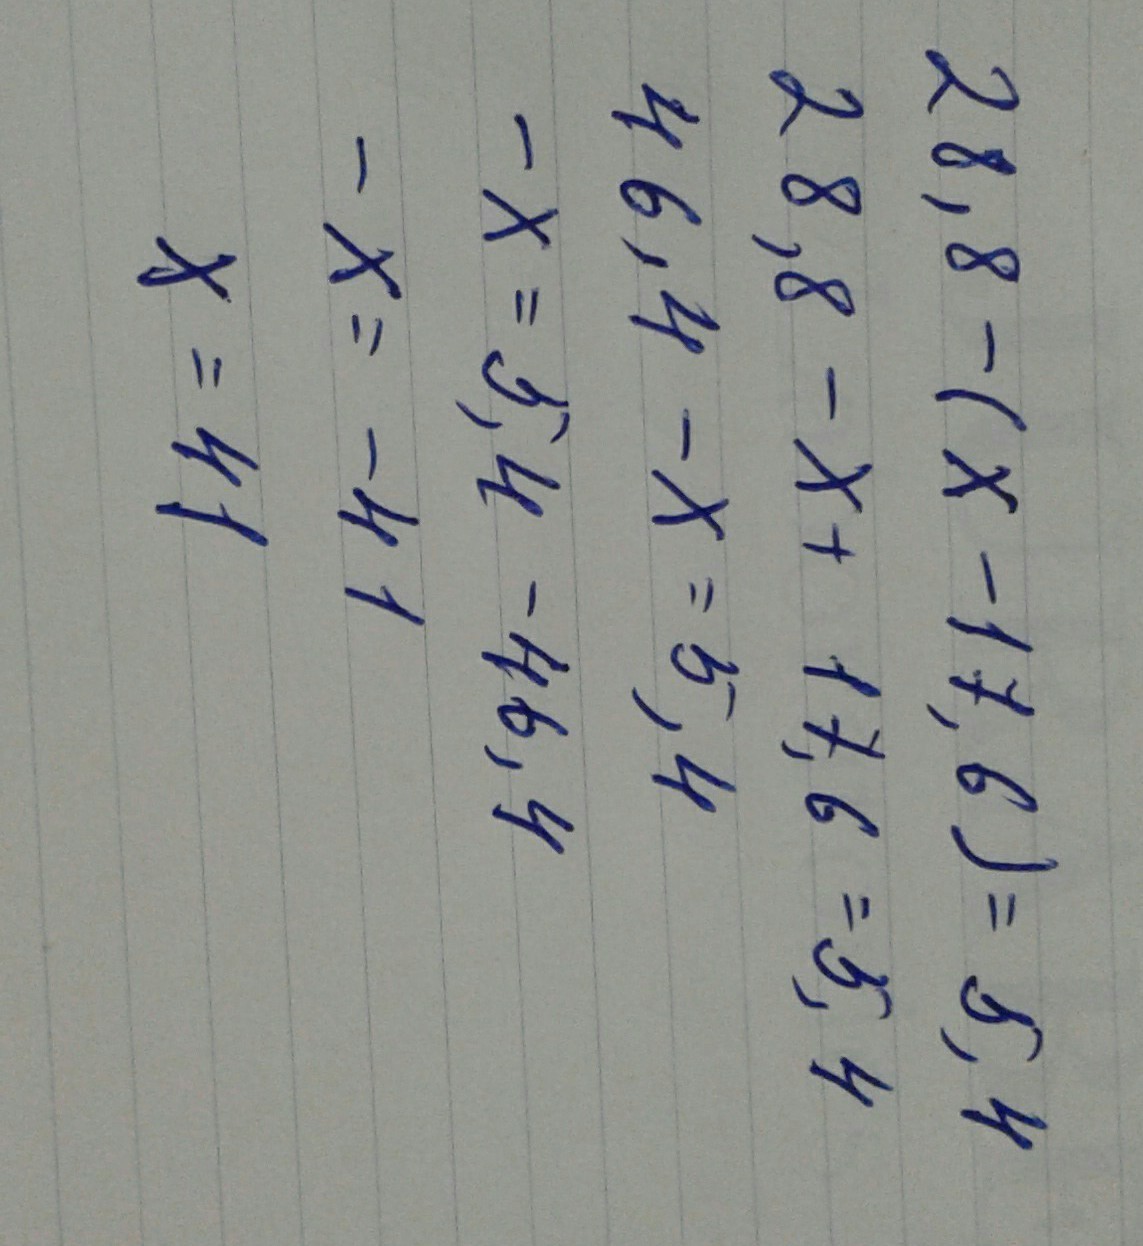 28,8-(x-17,6)=5,4
28,8-x+17,6=5,4
46,4-x=5,4
-x=5,4-46,4
-x=-41
x=41